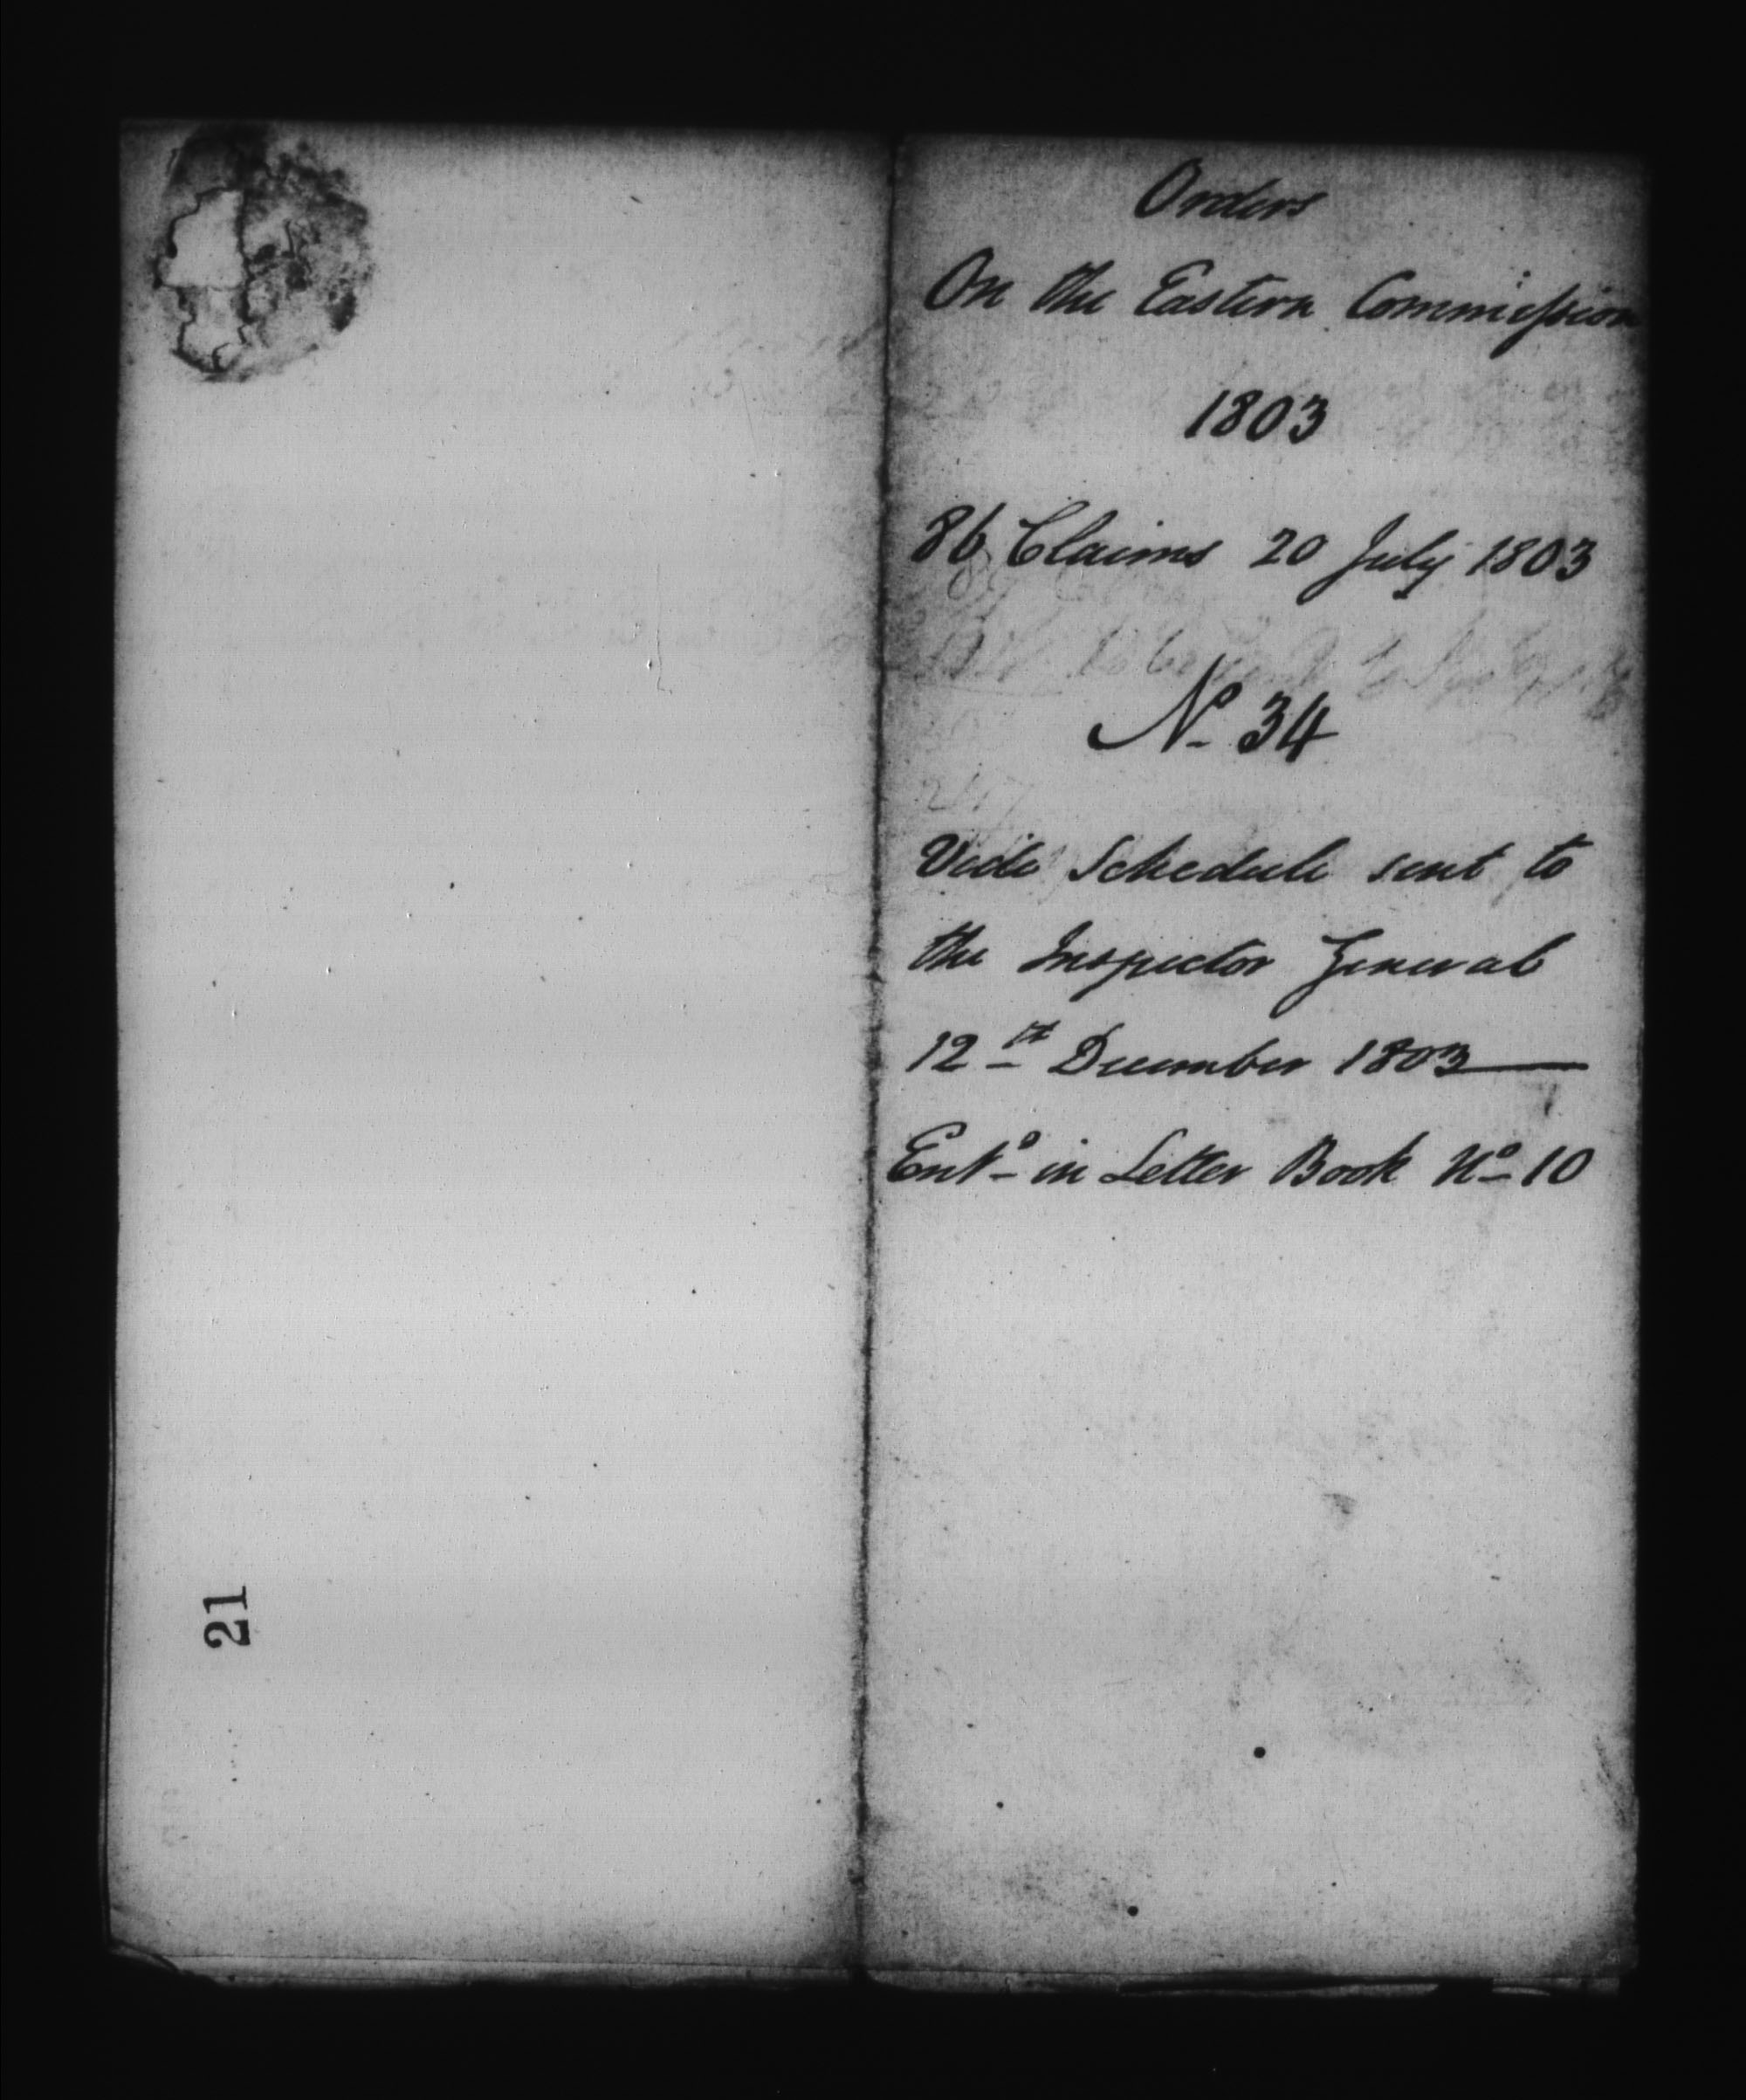 Orders
On the Eastern Commission
1803
86 Claims 20 July 1803
No 34
Vide Schedule sent to
the Inspector General
12th December 1803
Entd in Letter Book No 10
21